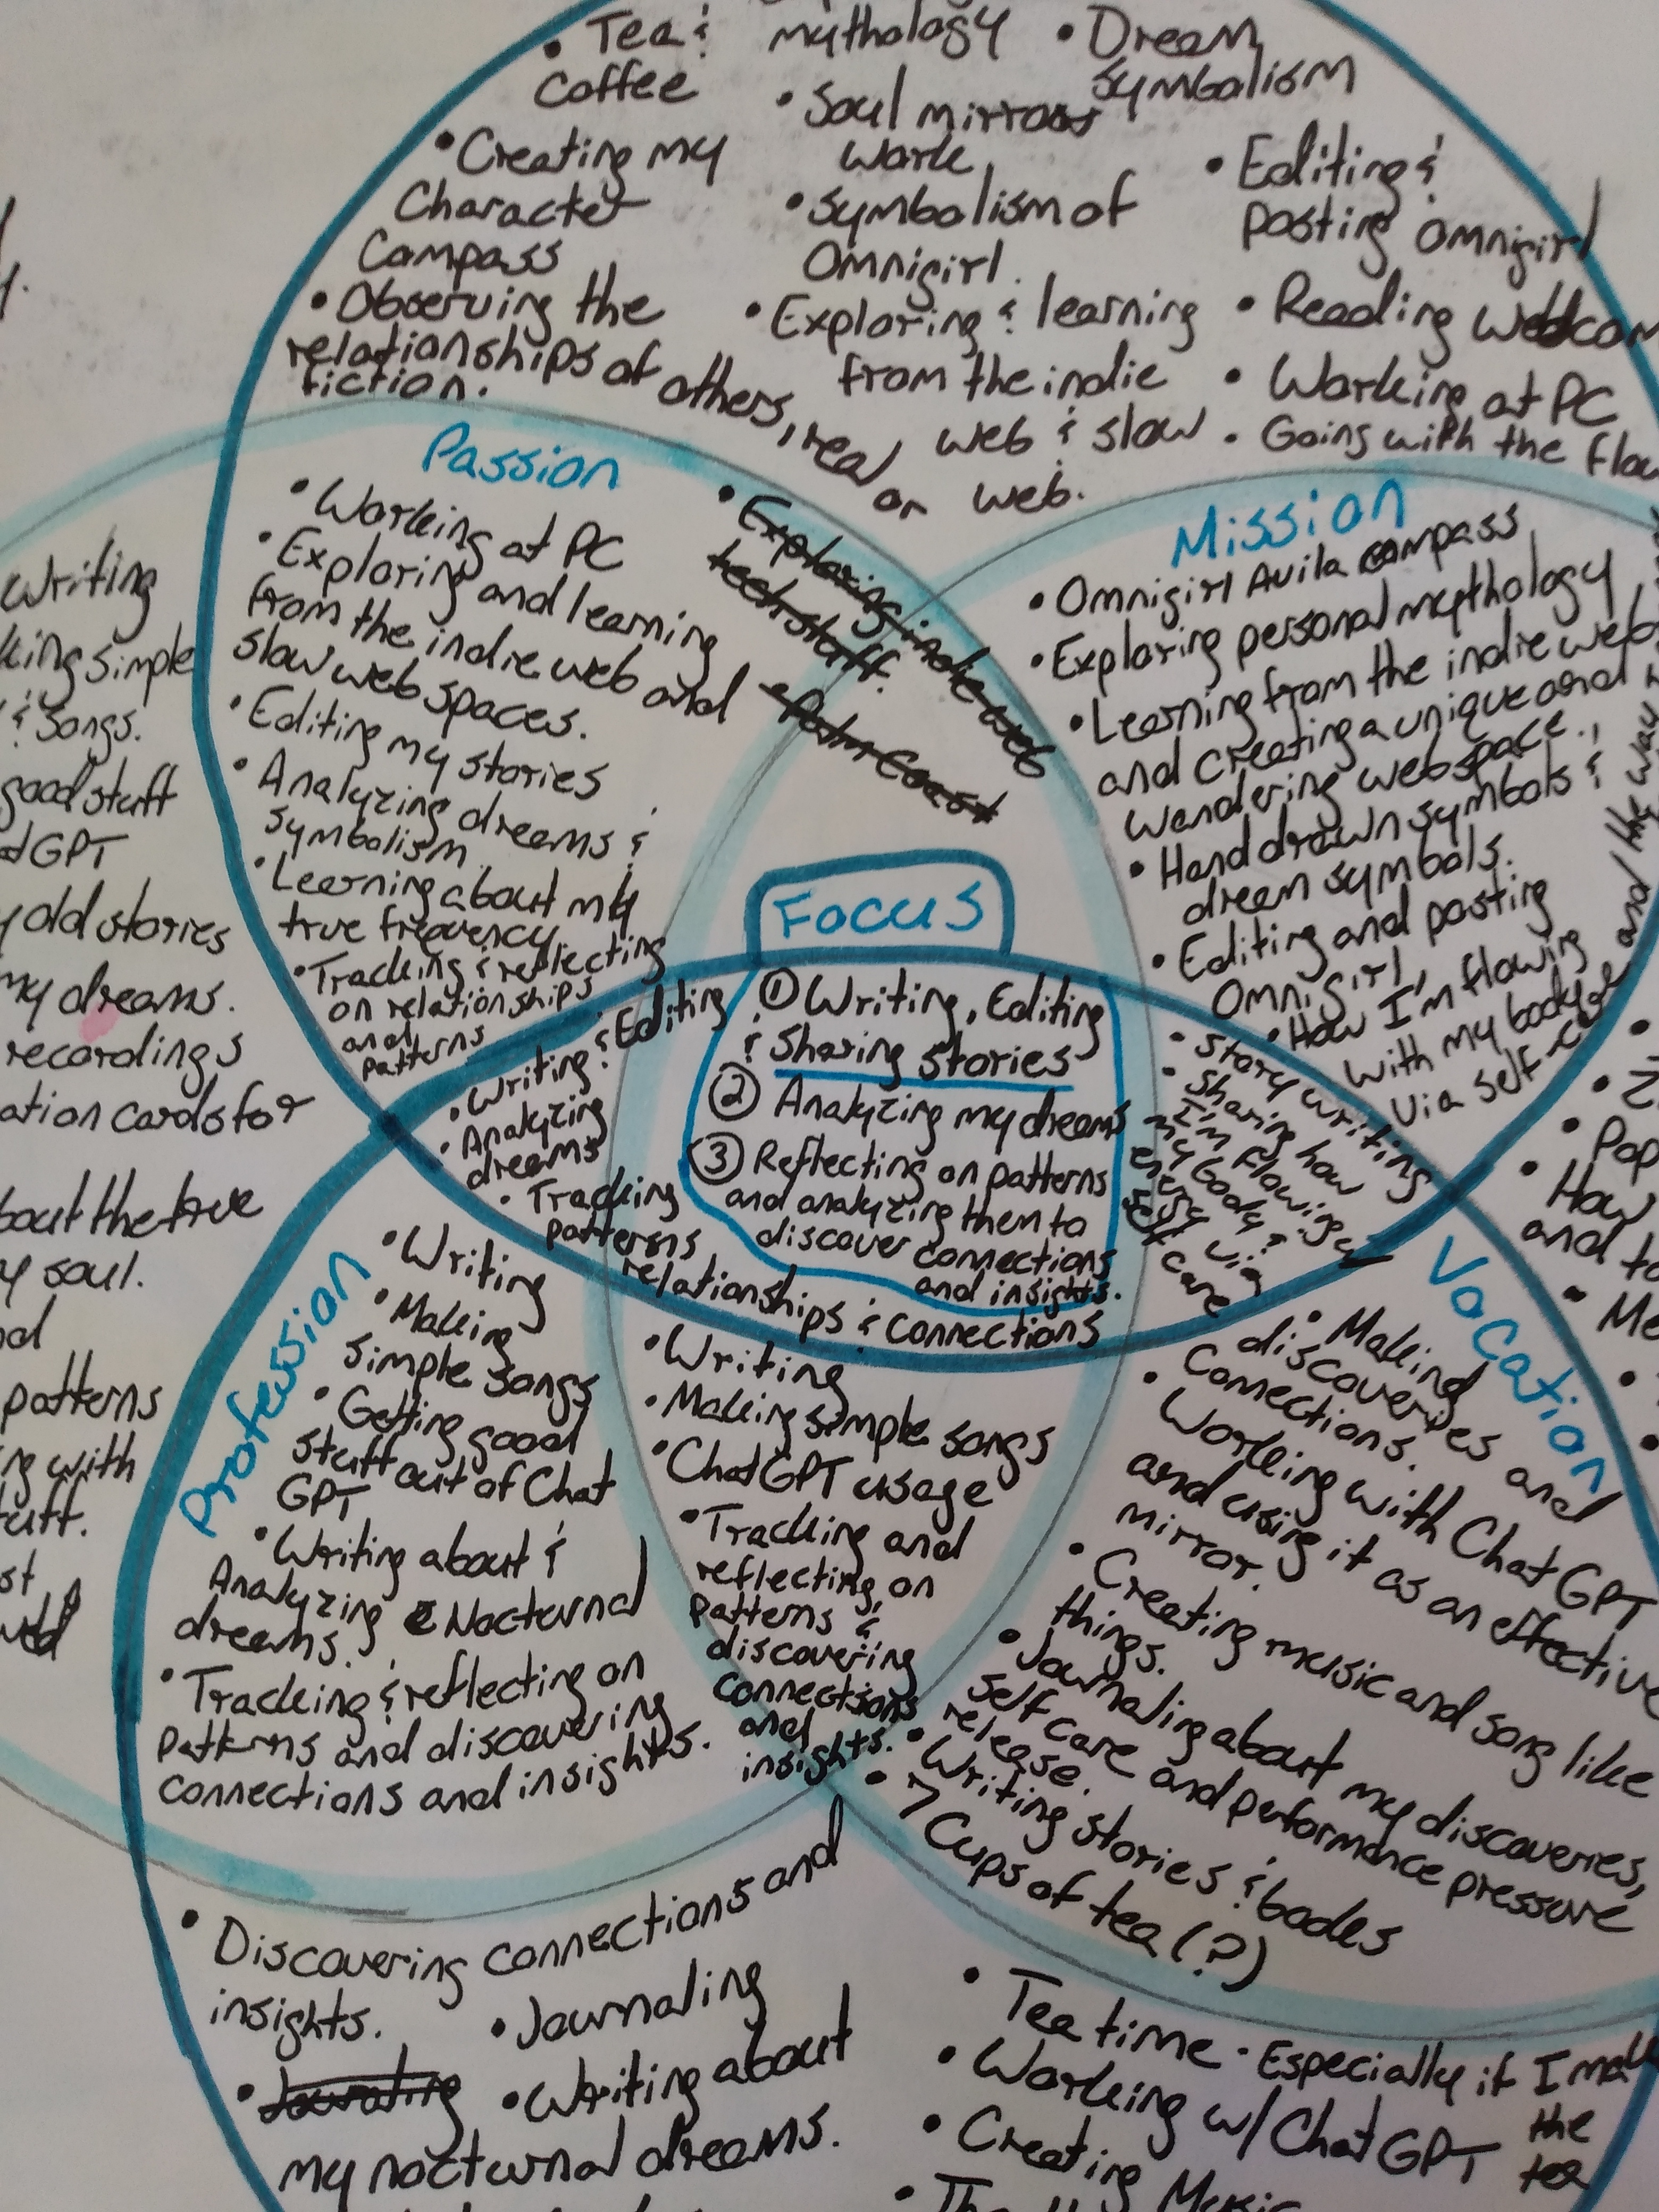 • Tea &
Coffee
• Creating my
Character
Compass
• Observing the
relationships of others, real or
fiction.
mythology
• Soul mirror
work
• Symbolism of
Omnigirl.
• Exploring & learning
from the indie
web & slow
web.
• Dream
Symbolism
• Editing &
posting Omnigirl
• Reading
• Working at PC
• Going with the
Passion
• Working at PC
• Exploring and learning
from the indie web and
slow web spaces.
• Editing my stories
• Analyzing dreams &
symbolism
• Learning about my
true frequency
• Tracking & reflecting
on relationships
and
patterns
• Exploring indie web
tech stuff.
• Palm Coast
Mission
• Omnigirl Avila Compass
• Exploring personal mythology
• Learning from the indie web
and creating a unique and
wandering webspace.
• Hand drawn symbols &
dream symbols.
• Editing and posting
Omnigirl,
• How I'm flowing
with my body
via self
and the way
writing
simple
& songs.
good stuff
GPT
old stories
my dreams.
recordings
cards for
the true
soul.
patterns
with
Focus
① Writing, Editing
& Sharing stories
② Analyzing my dreams
③ Reflecting on patterns
and analyzing them to
discover connections
and insights.
• Writing & Editing
• Analyzing
dreams
• Tracking
patterns
relationships & connections
• Story writing
• Sharing how
I'm flowing w/
my body &
energy via
self care
Profession
• Writing
• Making
simple songs
• Getting good
stuff out of Chat
GPT
• Writing about &
Analyzing Nocturnal
dreams.
• Tracking & reflecting on
patterns and discovering
connections and insights.
• Writing
• Making simple songs
• ChatGPT usage
• Tracking and
reflecting on
patterns &
discovering
connections
and
insights.
Vocation
• Making
discoveries and
connections.
• Working with Chat GPT
and using it as an effective
mirror.
• Creating music and song like
things.
• Journaling about my discoveries,
self care and performance pressure
release.
• Writing stories & bodes
• 7 Cups of tea (?)
• Pop
• How
and to
• Discovering connections and
insights.
• Journaling
• Journaling
• Writing about
my nocturnal dreams.
• Tea time - Especially if I make
the
tea
• Working w/ Chat GPT
• Creating Music